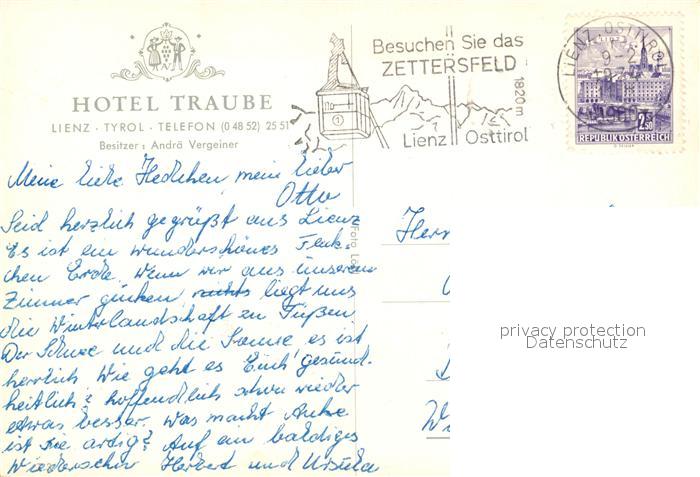 HOTEL TRAUBE
LIENZ · TYROL · TELEFON (0 48 52) 25 51
Besitzer: Andrä Vergeiner
Besuchen Sie das
ZETTERSFELD
1820 m
Lienz Osttirol
LIENZ, OSTTIROL
2.50
REPUBLIK ÖSTERREICH
Meine liebe Hedchen, mein lieber
Otto
Seid herzlich gegrüßt aus Lienz
Es ist ein wunderschönes Fleck-
chen Erde. Wenn wir aus unserem
Zimmer gucken liegt uns
die Winterlandschaft zu Füßen
Der Schnee und die Sonne es ist
herrlich Wie geht es Euch gesund-
heitlich? hoffendlich schon wieder
etwas besser. Was macht Anke
ist sie artig? Auf ein baldiges
Wiedersehn Herbert und Ursula
Foto
Herr
privacy protection
Datenschutz